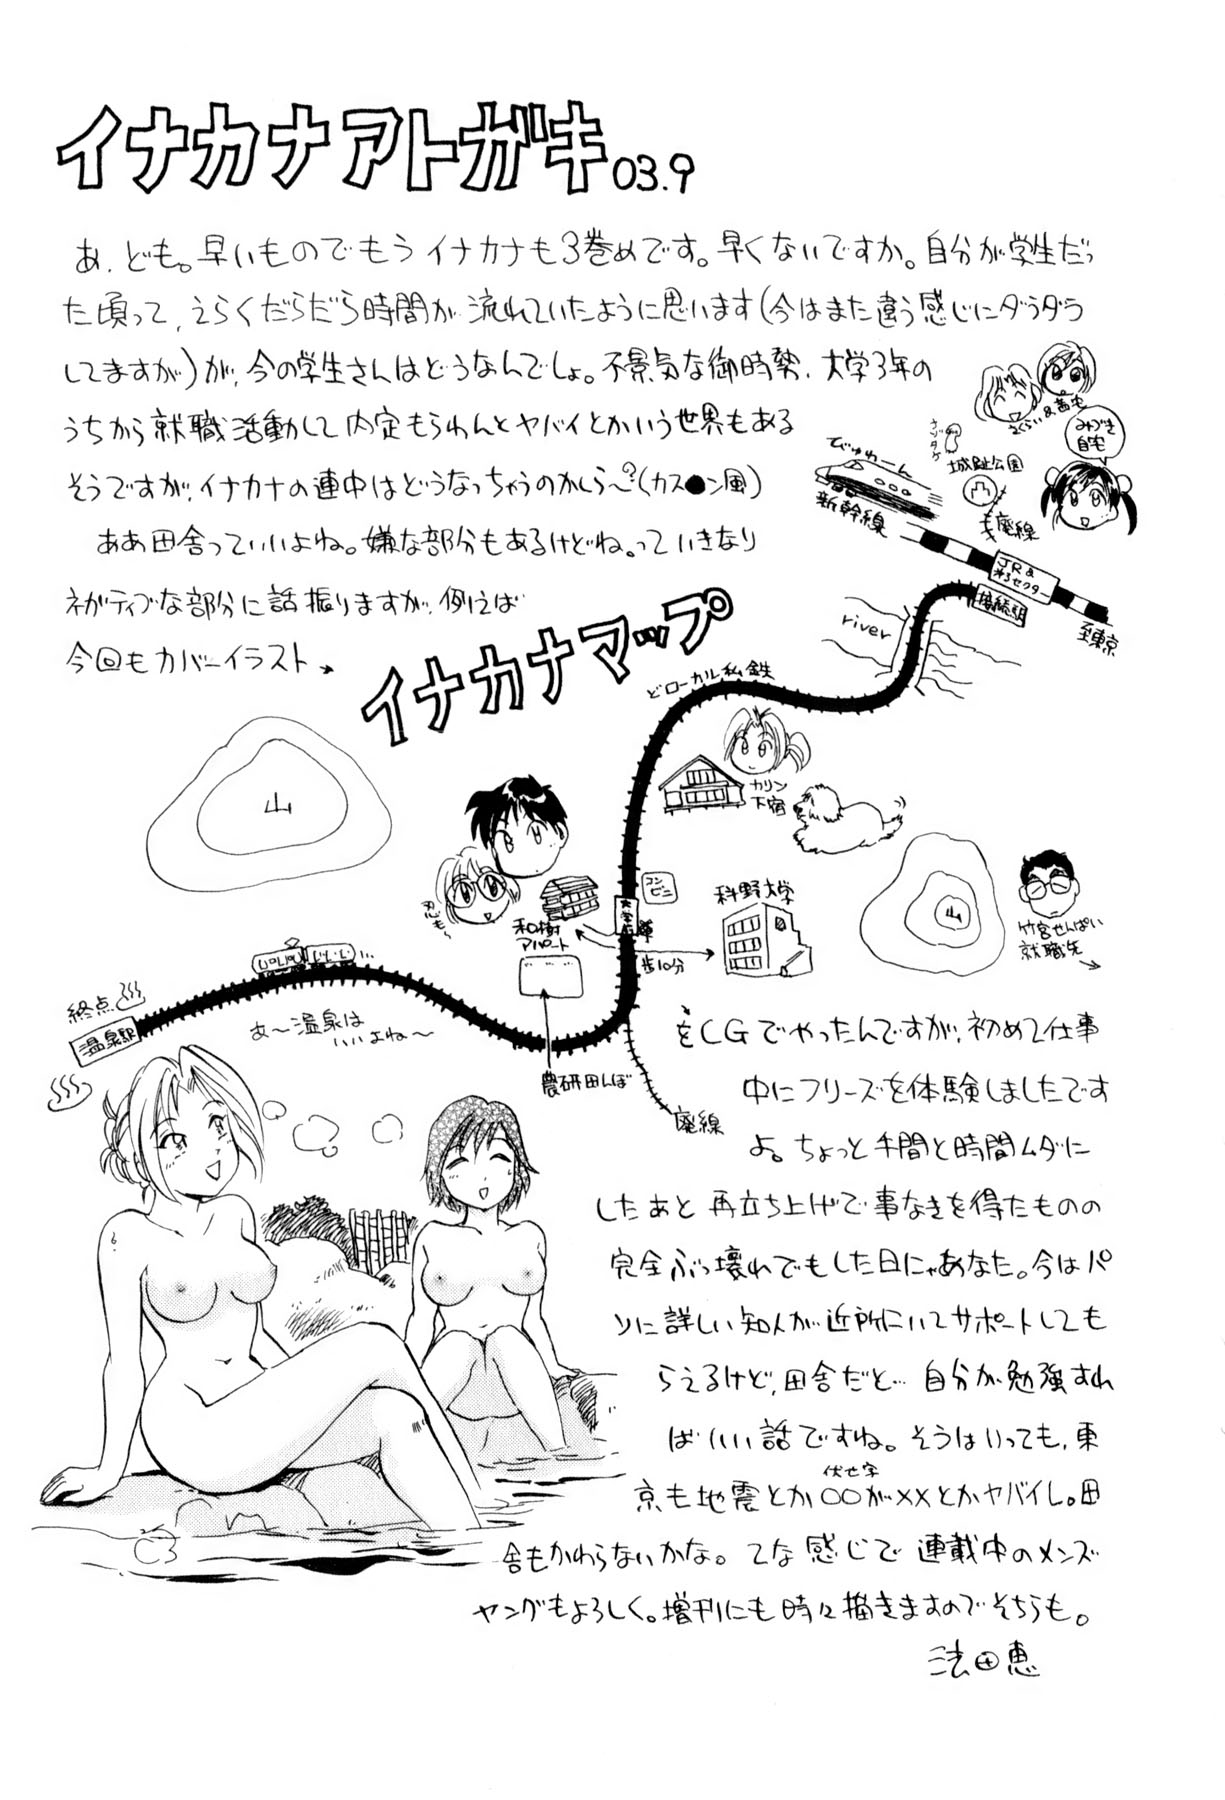 イナカナアトガキ 03.9
あ、ども。早いものでもうイナカナも3巻めです。早くないですか。自分が学生だっ
た頃って、えらくだらだら時間が流れていたように思います(今はまた違う感じにダラダラ
してますが)が、今の学生さんはどうなんでしょ。不景気な御時勢、大学3年の
うちから就職活動して内定もらわんとヤバイとかいう世界もある
そうですが、イナカナの連中はどうなっちゃうのかしら〜?(カス●ン風)
ああ田舎っていいよね。嫌な部分もあるけどね。っていきなり
ネガティブな部分に話振りますが、例えば
今回もカバーイラスト
さくらい&茜宅
みづき
自宅
城趾公園
廃線
びゅわーん
新幹線
JR&
第3セクター
接続駅
至東京
river
イナカナマップ
どローカル私鉄
山
カリン
下宿
忍も〜
和樹
アパート
コンビニ
大学前
科野大学
歩10分
山
竹宮せんぱい
就職先
終点
温泉駅
あ〜温泉は
いいよね〜
農研田んぼ
廃線
をCGでやったんですが、初めて仕事
中にフリーズを体験しましたです
よ。ちょっと手間と時間ムダに
したあと再立ち上げで事なきを得たものの
完全ぶっ壊れでもした日にゃあなた。今はパ
ソに詳しい知人が近所にいてサポートしても
らえるけど、田舎だと… 自分が勉強すれ
ばいい話ですね。そうはいっても、東
伏せ字
京も地震とか○○が××とかヤバイし。田
舎もかわらないかな。てな感じで連載中のメンズ
ヤングもよろしく。増刊にも時々描きますのでそちらも。
法田恵